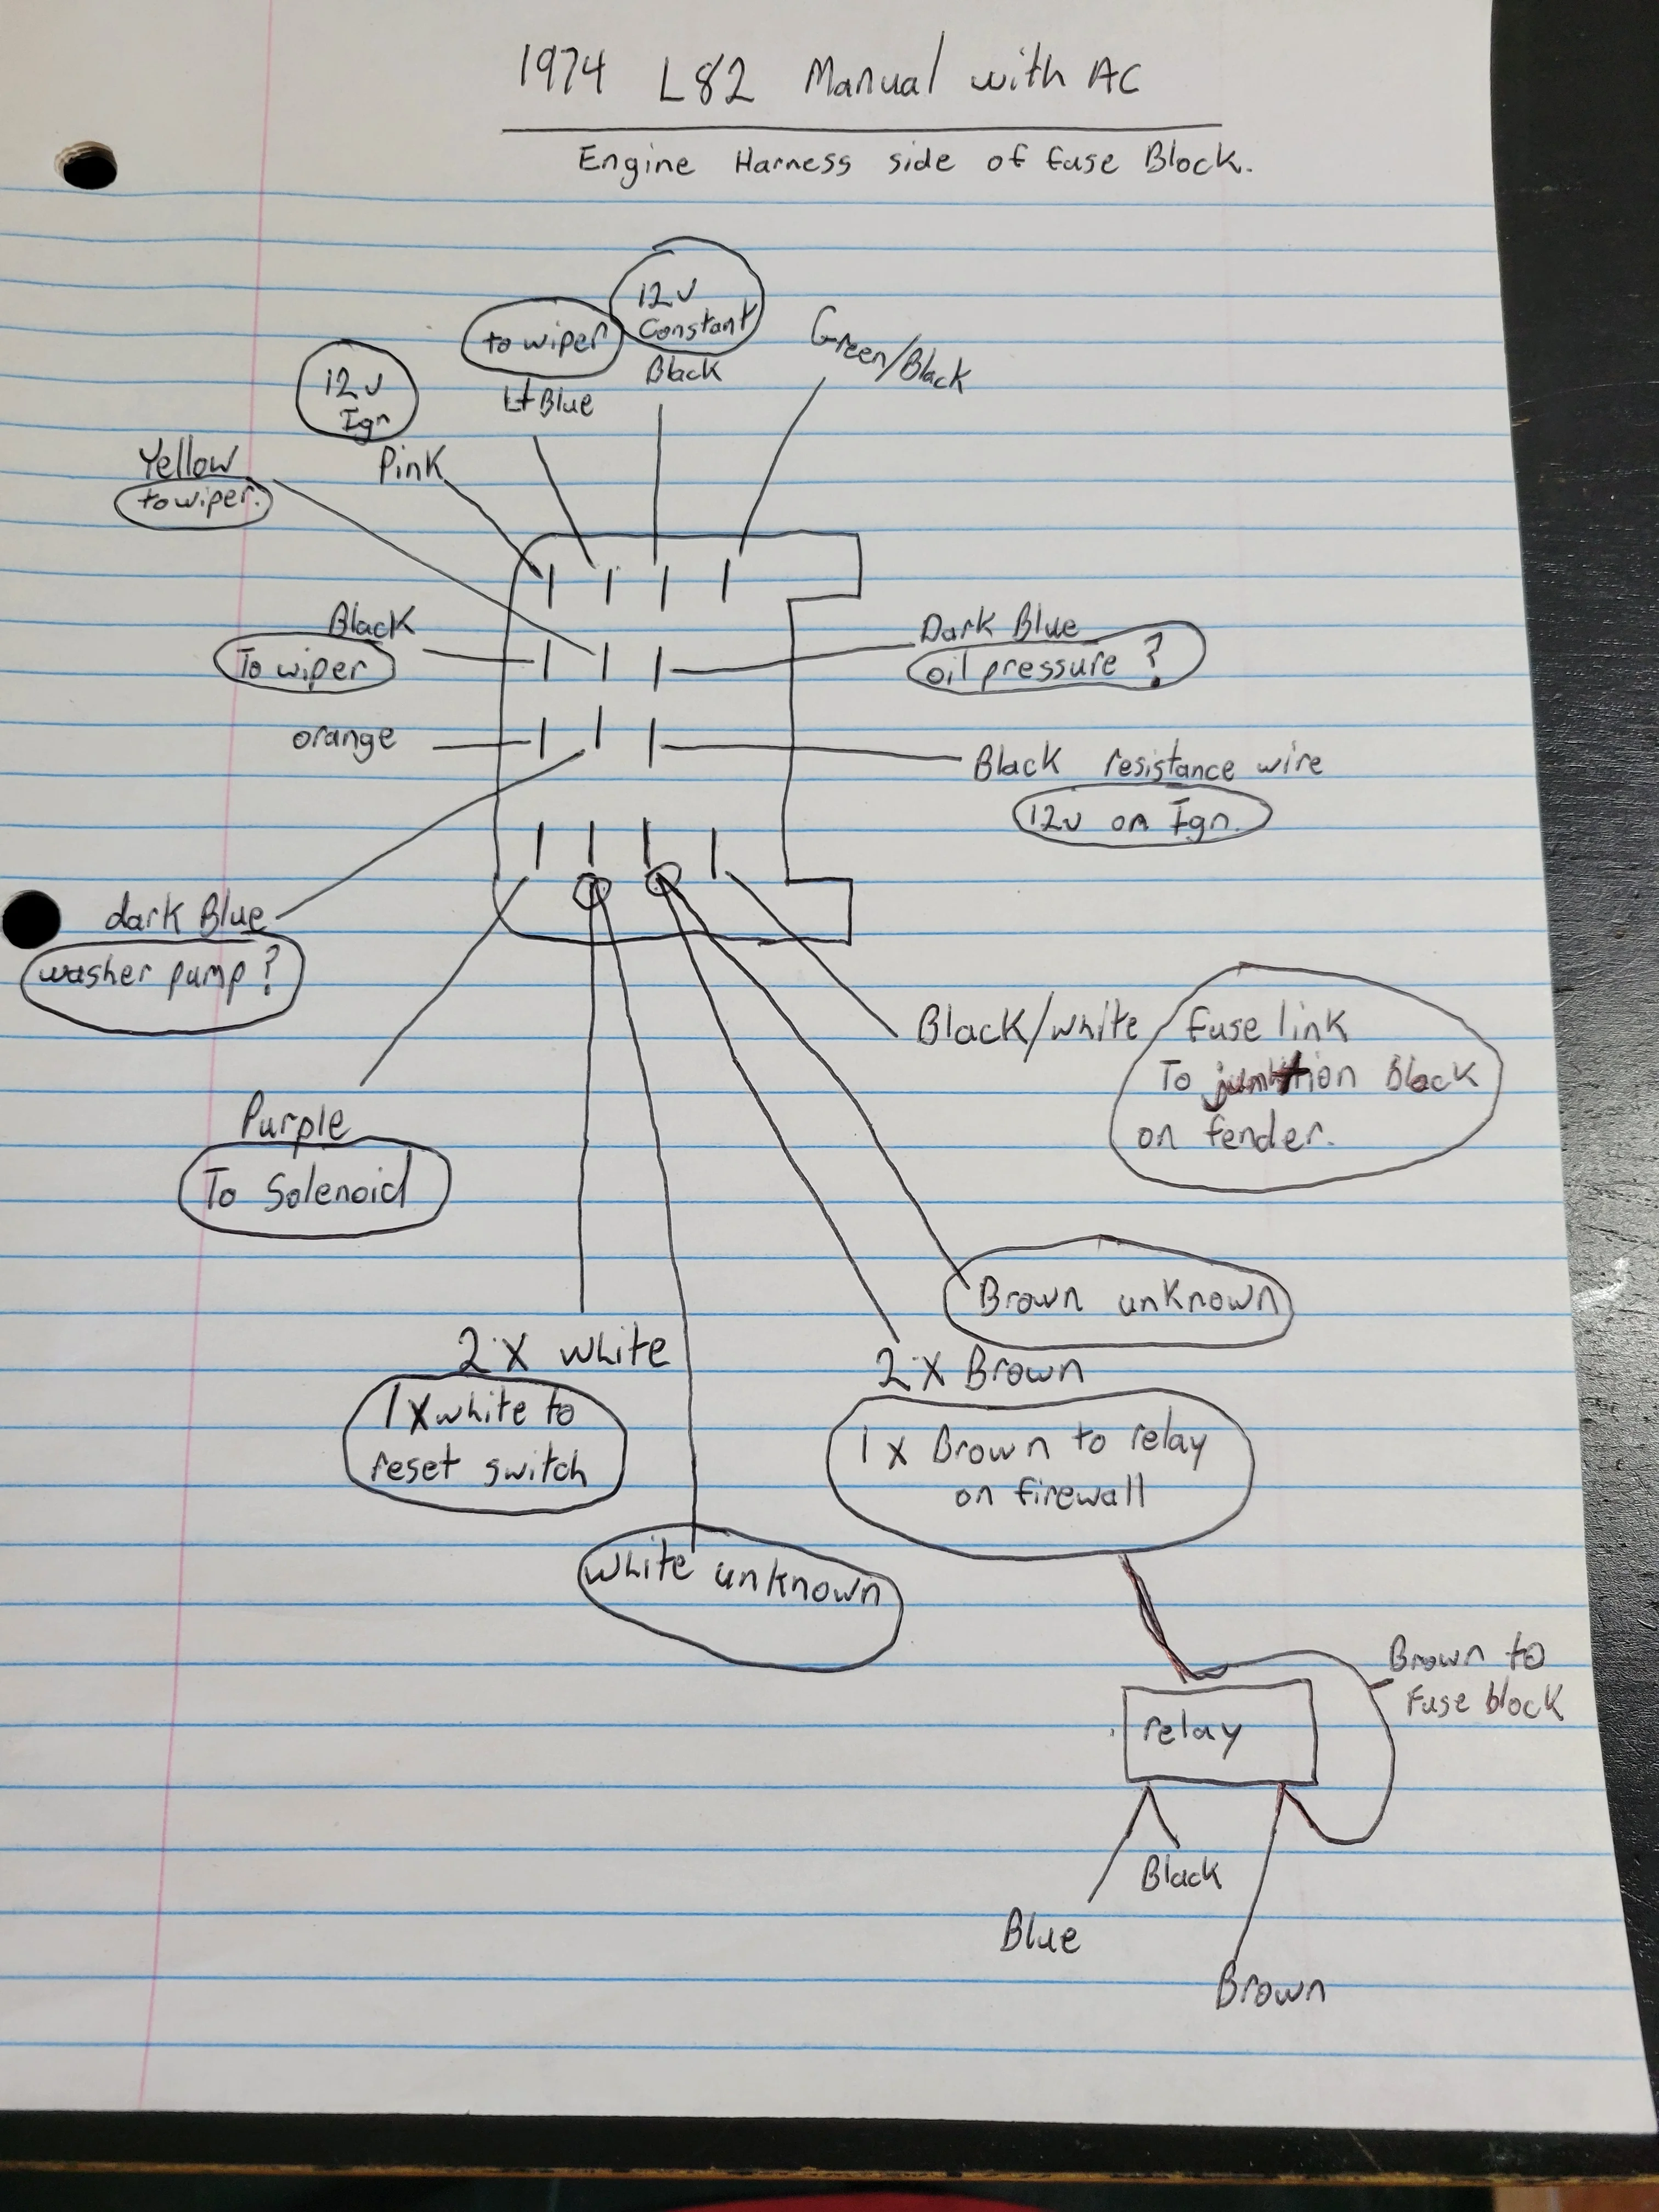 1974 L82 Manual with AC
Engine Harness side of fuse Block.
12v
Constant
Black
to wiper
Lt Blue
Green/Black
12v
Ign
Pink
Yellow
to wiper.
Black
To wiper
Dark Blue
oil pressure ?
orange
Black resistance wire
12v on Ign.
dark Blue
washer pump?
Black/white
fuse link
To block
on fender.
Purple
To Solenoid
Brown unknown
2 X white
1 X white to
reset switch
2 X Brown
1 X Brown to relay
on firewall
white unknown
Brown to
Fuse block
relay
Black
Blue
Brown